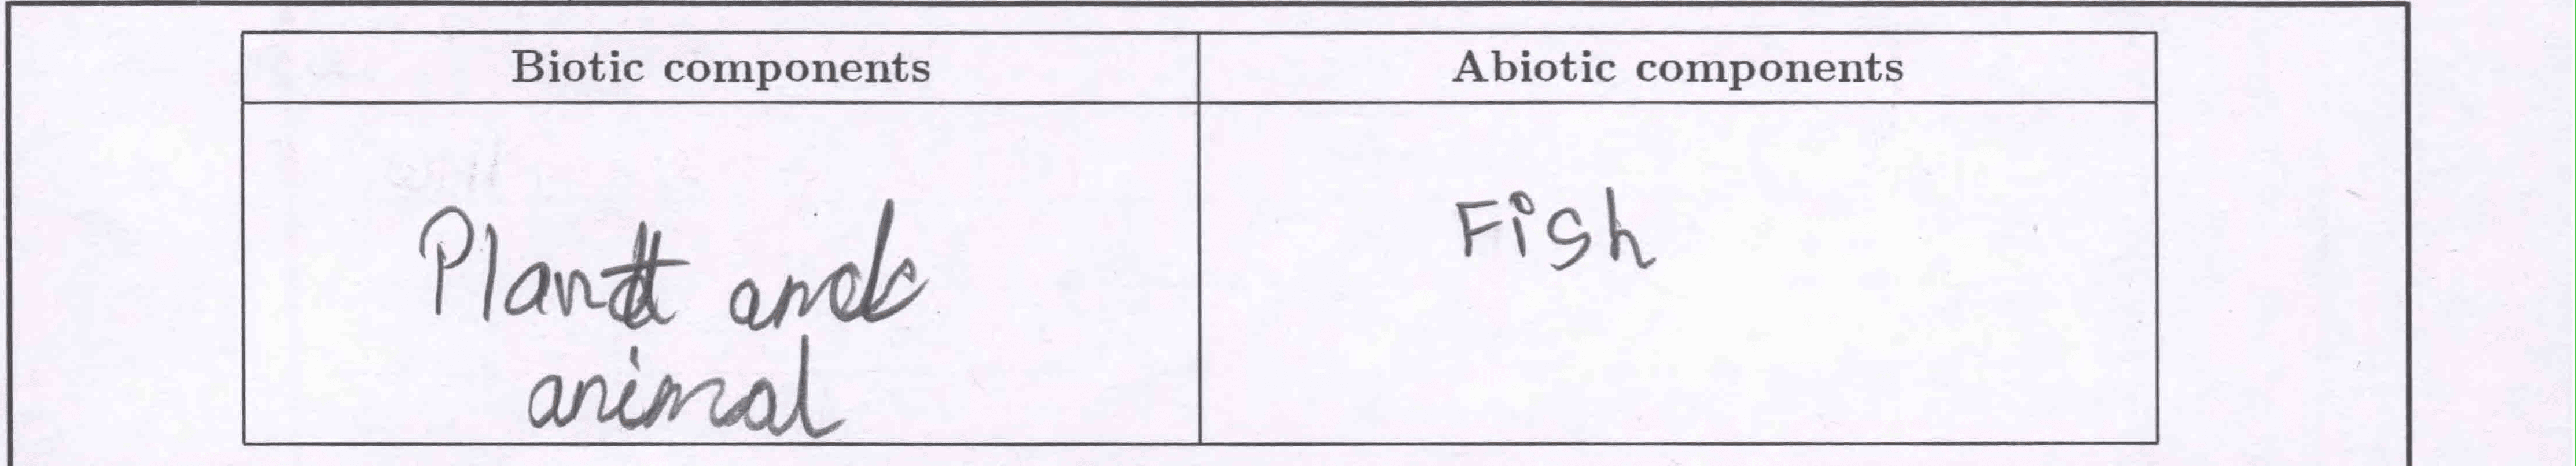 Biotic components
Abiotic components
Plant and
animal
Fish